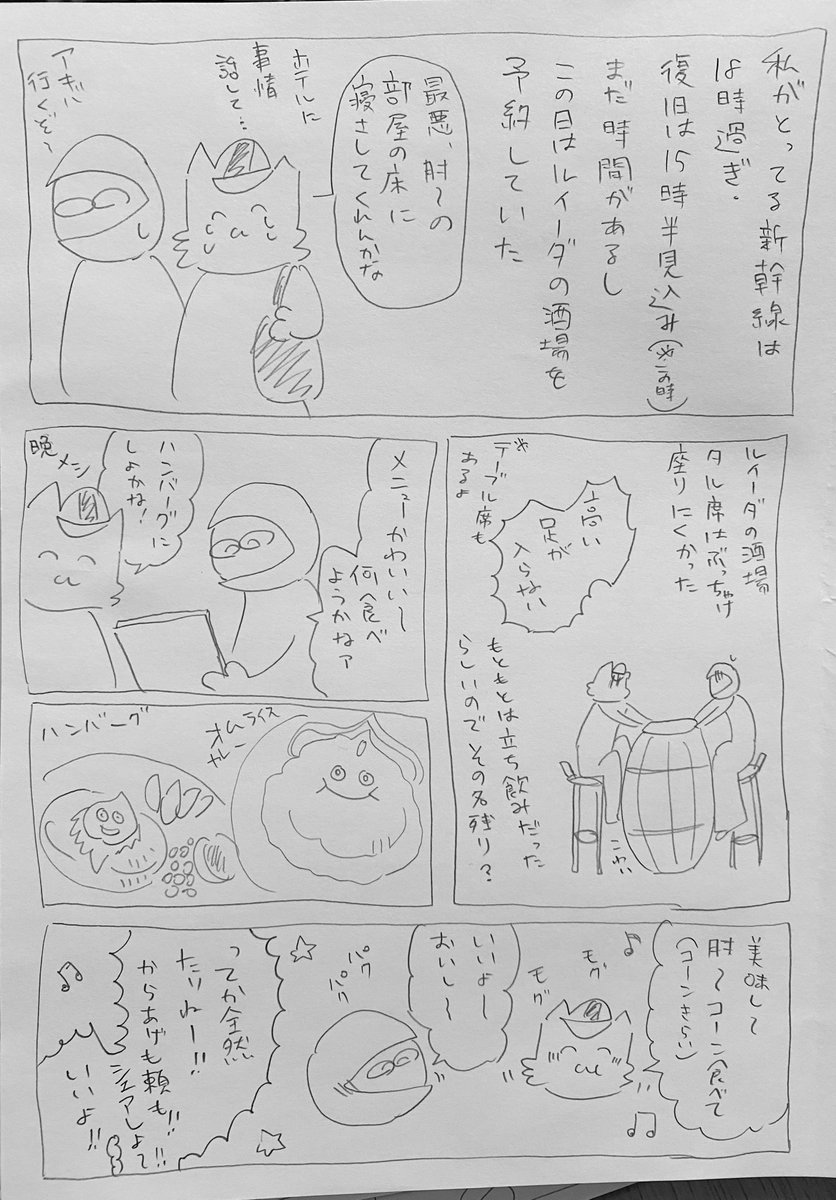 私がとってる新幹線は
18時過ぎ.
復旧は15時半見込み(※この時)
まだ時間があるし
この日はルイーダの酒場を
予約していた
最悪、肘〜の
部屋の床に
寝さしてくれんかな
ホテルに
事情
話して…
アキバ
行くぞ〜
ルイーダの酒場
タル席はぶっちゃけ
座りにくかった
高い
足が
入らない
※
テーブル席も
あるよ
もともとは立ち飲みだった
らしいのでその名残り?
こわい
メニューかわいい〜
何食べ
ようかねァ
ハンバーグに
しよかな!
晩メシ
オムライス
カレー
ハンバーグ
美味して
肘〜コーン食べて
(コーンきらい)
モグ
モグ
いいよ〜
おいし〜
パク
パク
ってか全然
たりねー!!
からあげも頼も!!
シェアしよて!!
いいよ!!